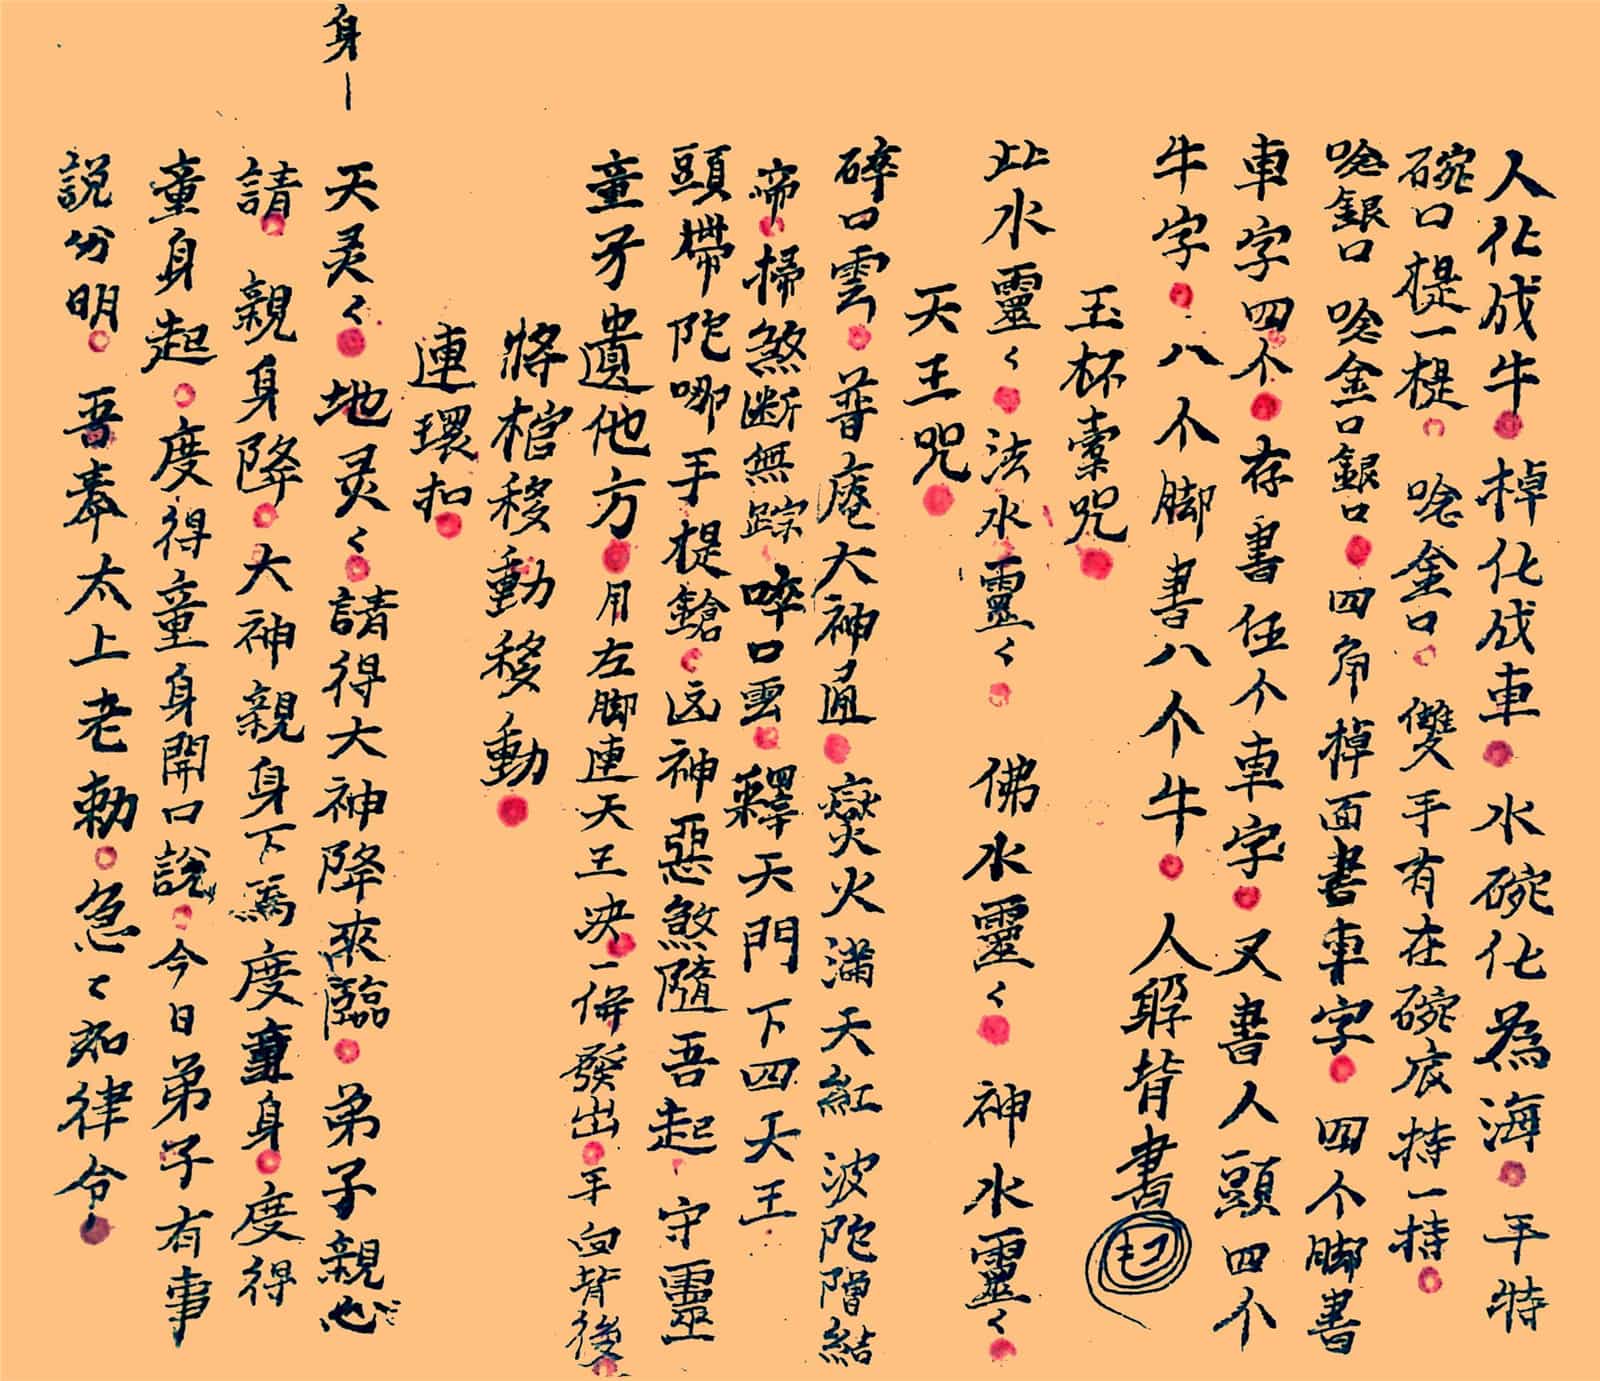 人化成牛棹化成車水碗化為海手持
碗口提一提唸金口雙手有在碗底持一持
唸銀口唸金口銀口四角棹面書車字四个脚書
車字四个存書任个車字又書人頭四个
牛字八个脚書八个牛人背書
玉杯索咒
此水靈々法水靈々佛水靈々神水靈々
天王咒
碎口雲普庵大神通火滿天紅波陀結
帝掃煞断無踪啐口雲釋天門下四天王
頭帶陀哪手提鎗凶神惡煞隨吾起守靈
童子遣他方用左脚連天王决一併發出手向背後
將棺移動移動
連環扣
身
天灵々地灵々請得大神降來臨弟子親
請親身降大神親身下馬度童身度得
童身起度得童身開口說今日弟子有事
説分明吾奉太上老勅急々如律令